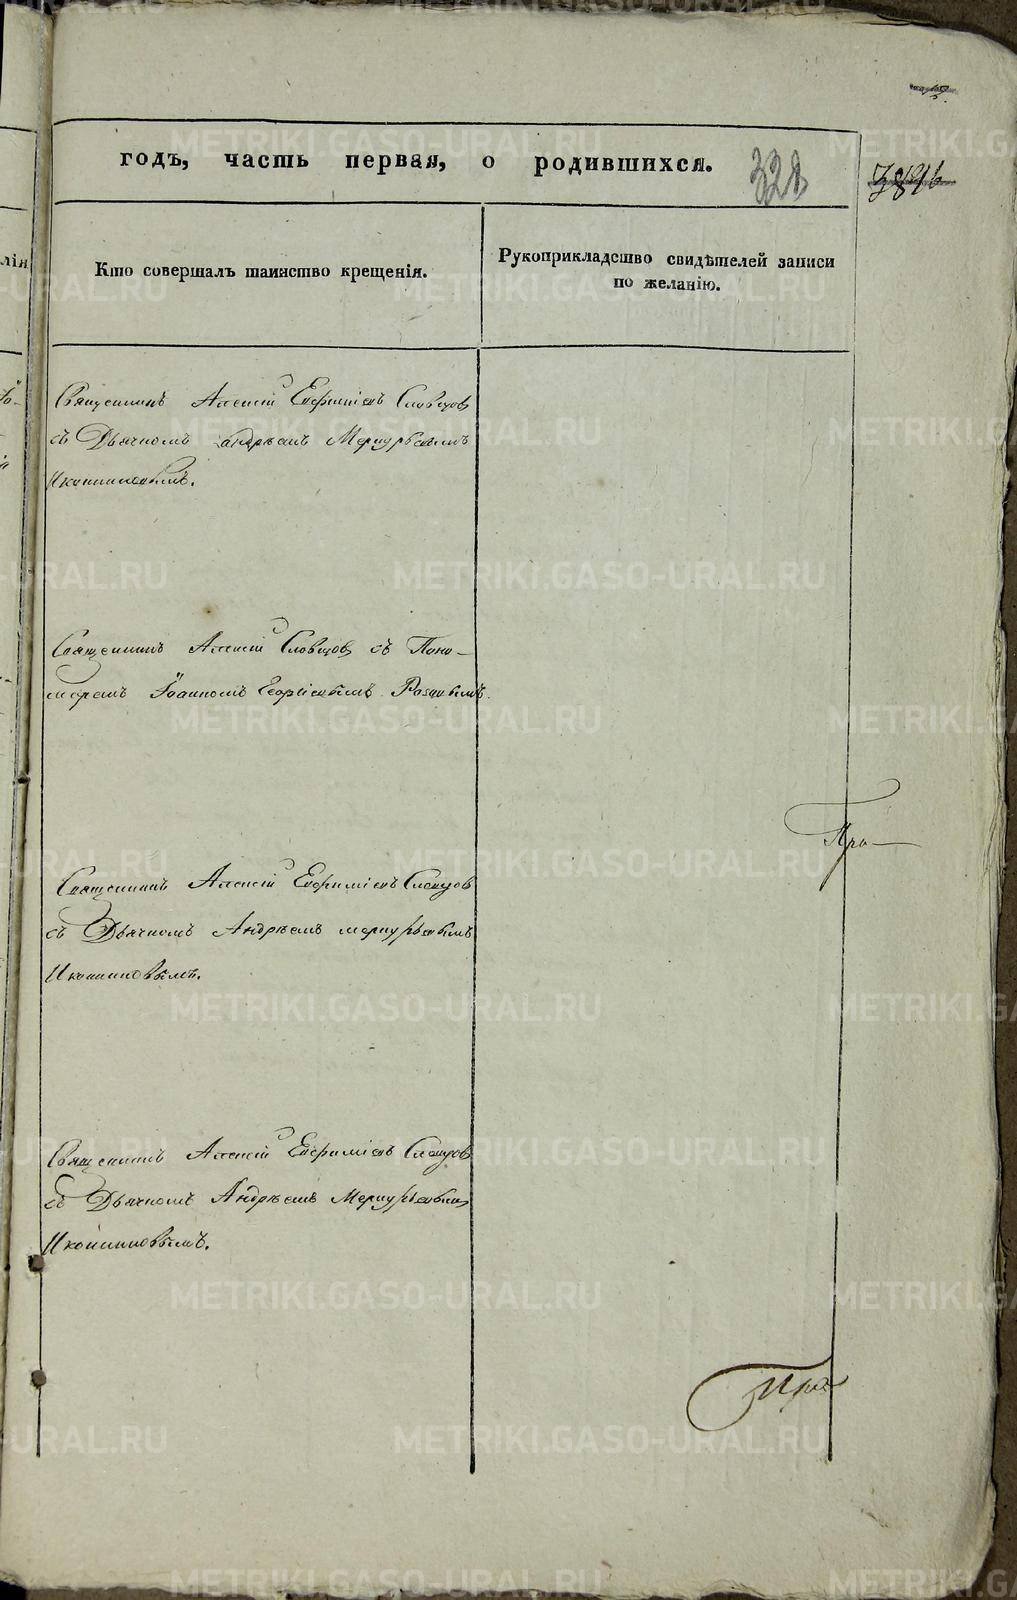 годъ, часть первая, о родившихся.
328
Кто совершалъ таинство крещенія.
Рукоприкладство свидѣтелей записи
по желанію.
лія
Священникъ Алексій Евфиміевъ Словцовъ
съ Дьячкомъ Андрѣемъ Меркурьевымъ
Иконниковымъ.
Священникъ Алексій Словцовъ съ Поно-
маремъ Іоанномъ Георгіевымъ
Священникъ Алексій Евфиміевъ Словцовъ
съ Дьячкомъ Андрѣемъ Меркурьевымъ
Иконниковымъ.
Священникъ Алексій Евфиміевъ Словцовъ
съ Дьячкомъ Андрѣемъ Меркурьевымъ
Иконниковымъ.
METRIKI.GASO-URAL.RU